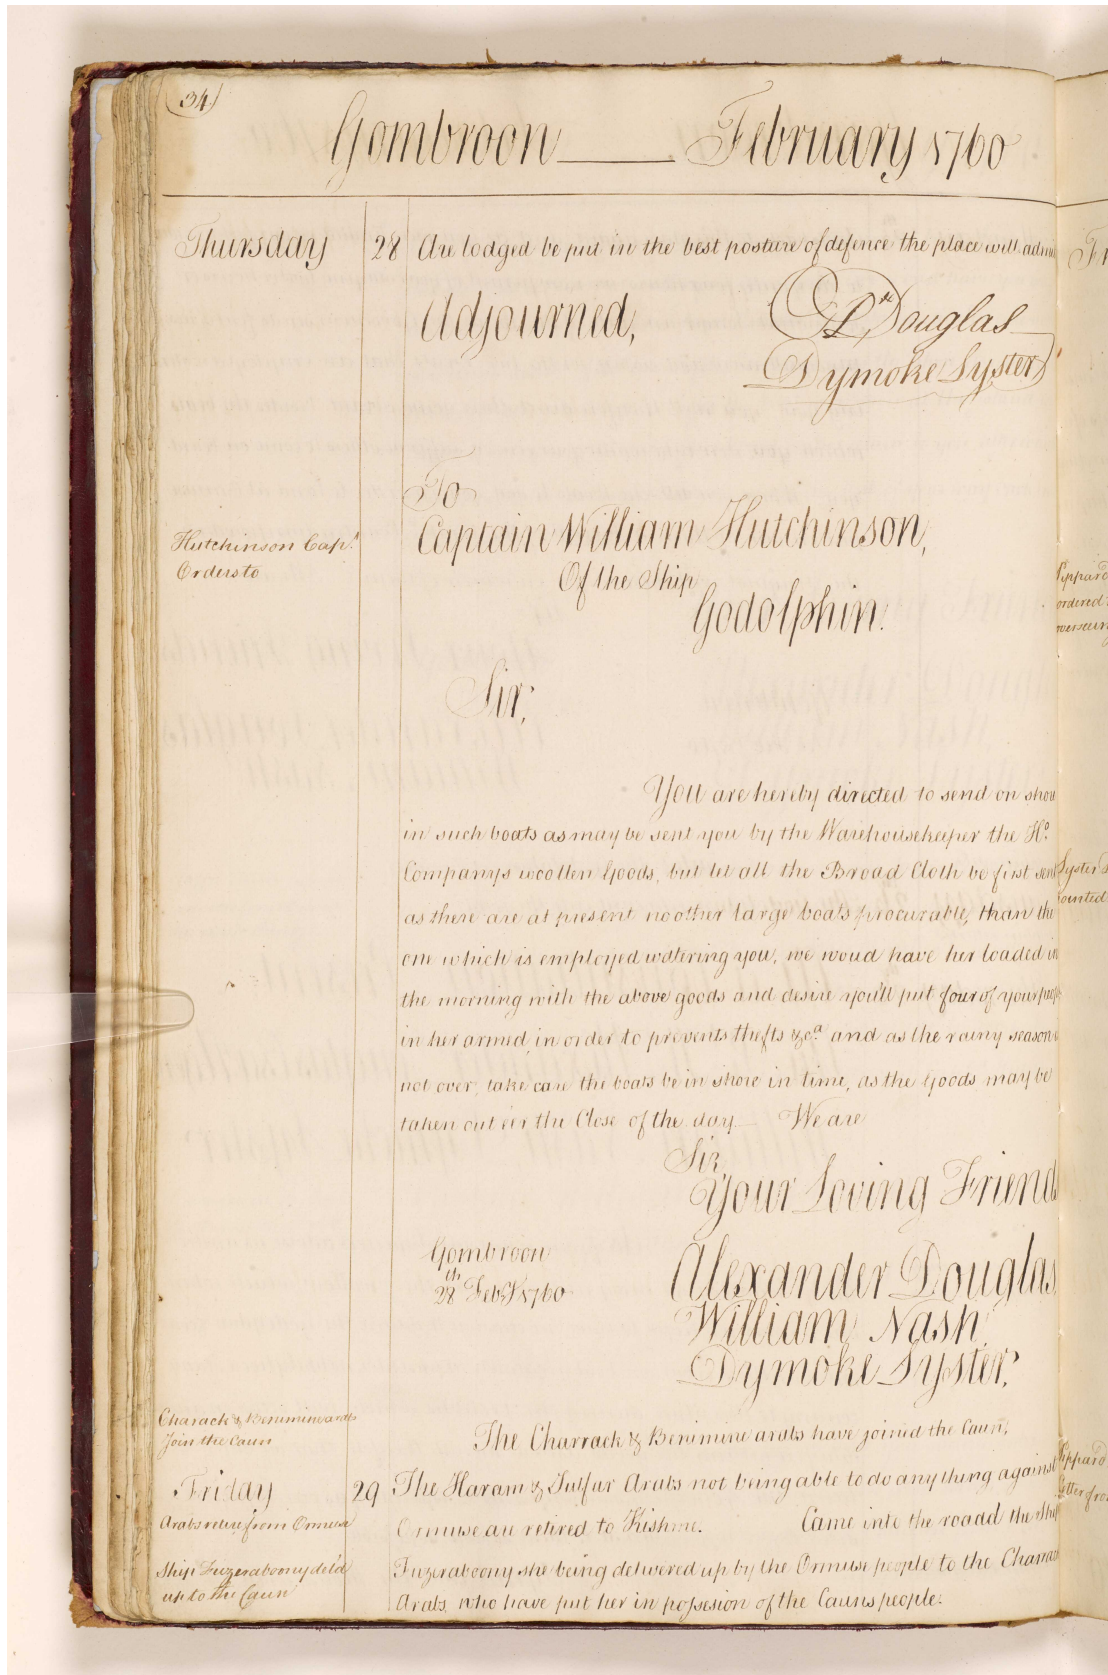 (34)
Gombroon February 1760
Thursday 28 Are lodged be put in the best posture of defence the place will admi
Adjourned,
Douglas
Dymoke Lyster
To
Captain William Hutchinson,
Hutchinson Capt.
Orders to
Of the Ship
Godolphin.
Sir,
You are hereby directed to send on shor
in such boats as may be sent you by the Warehousekeeper the Ho.
Companys woollen Goods, but let all the Broad Cloth be first sent
as there are at present no other large boats procurable, than the
one which is employed watering you, we woud have her loaded in
the morning with the above goods and desire you'll put four of your
in her armed, in order to prevents thefts &ca. and as the rainy season
not over, take care the boats be in shore in time, as the Goods may be
taken out e'er the Close of the day We are
Sir
Your Loving Friends
Gombroon
28th Feby 1760
Alexander Douglas
William Nash
Dymoke Lyster,
Charack & Benimine arabs
Join the Caun
The Charrack & Benimine arabs have joined the Caun,
Friday 29 The Haram & Julfar Arabs not being able to do any thing against
Arabs retire from Ormuse
Ormuse are retired to Kishme. Came into the roadd the Ship
Ship Fuzeraboony deld
up to the Caun
Fuzeraboony she being delivered up by the Ormuse people to the Charrack
Arabs, who have put her in possesion of the Cauns people.
Lyster
ordered
Letter fro